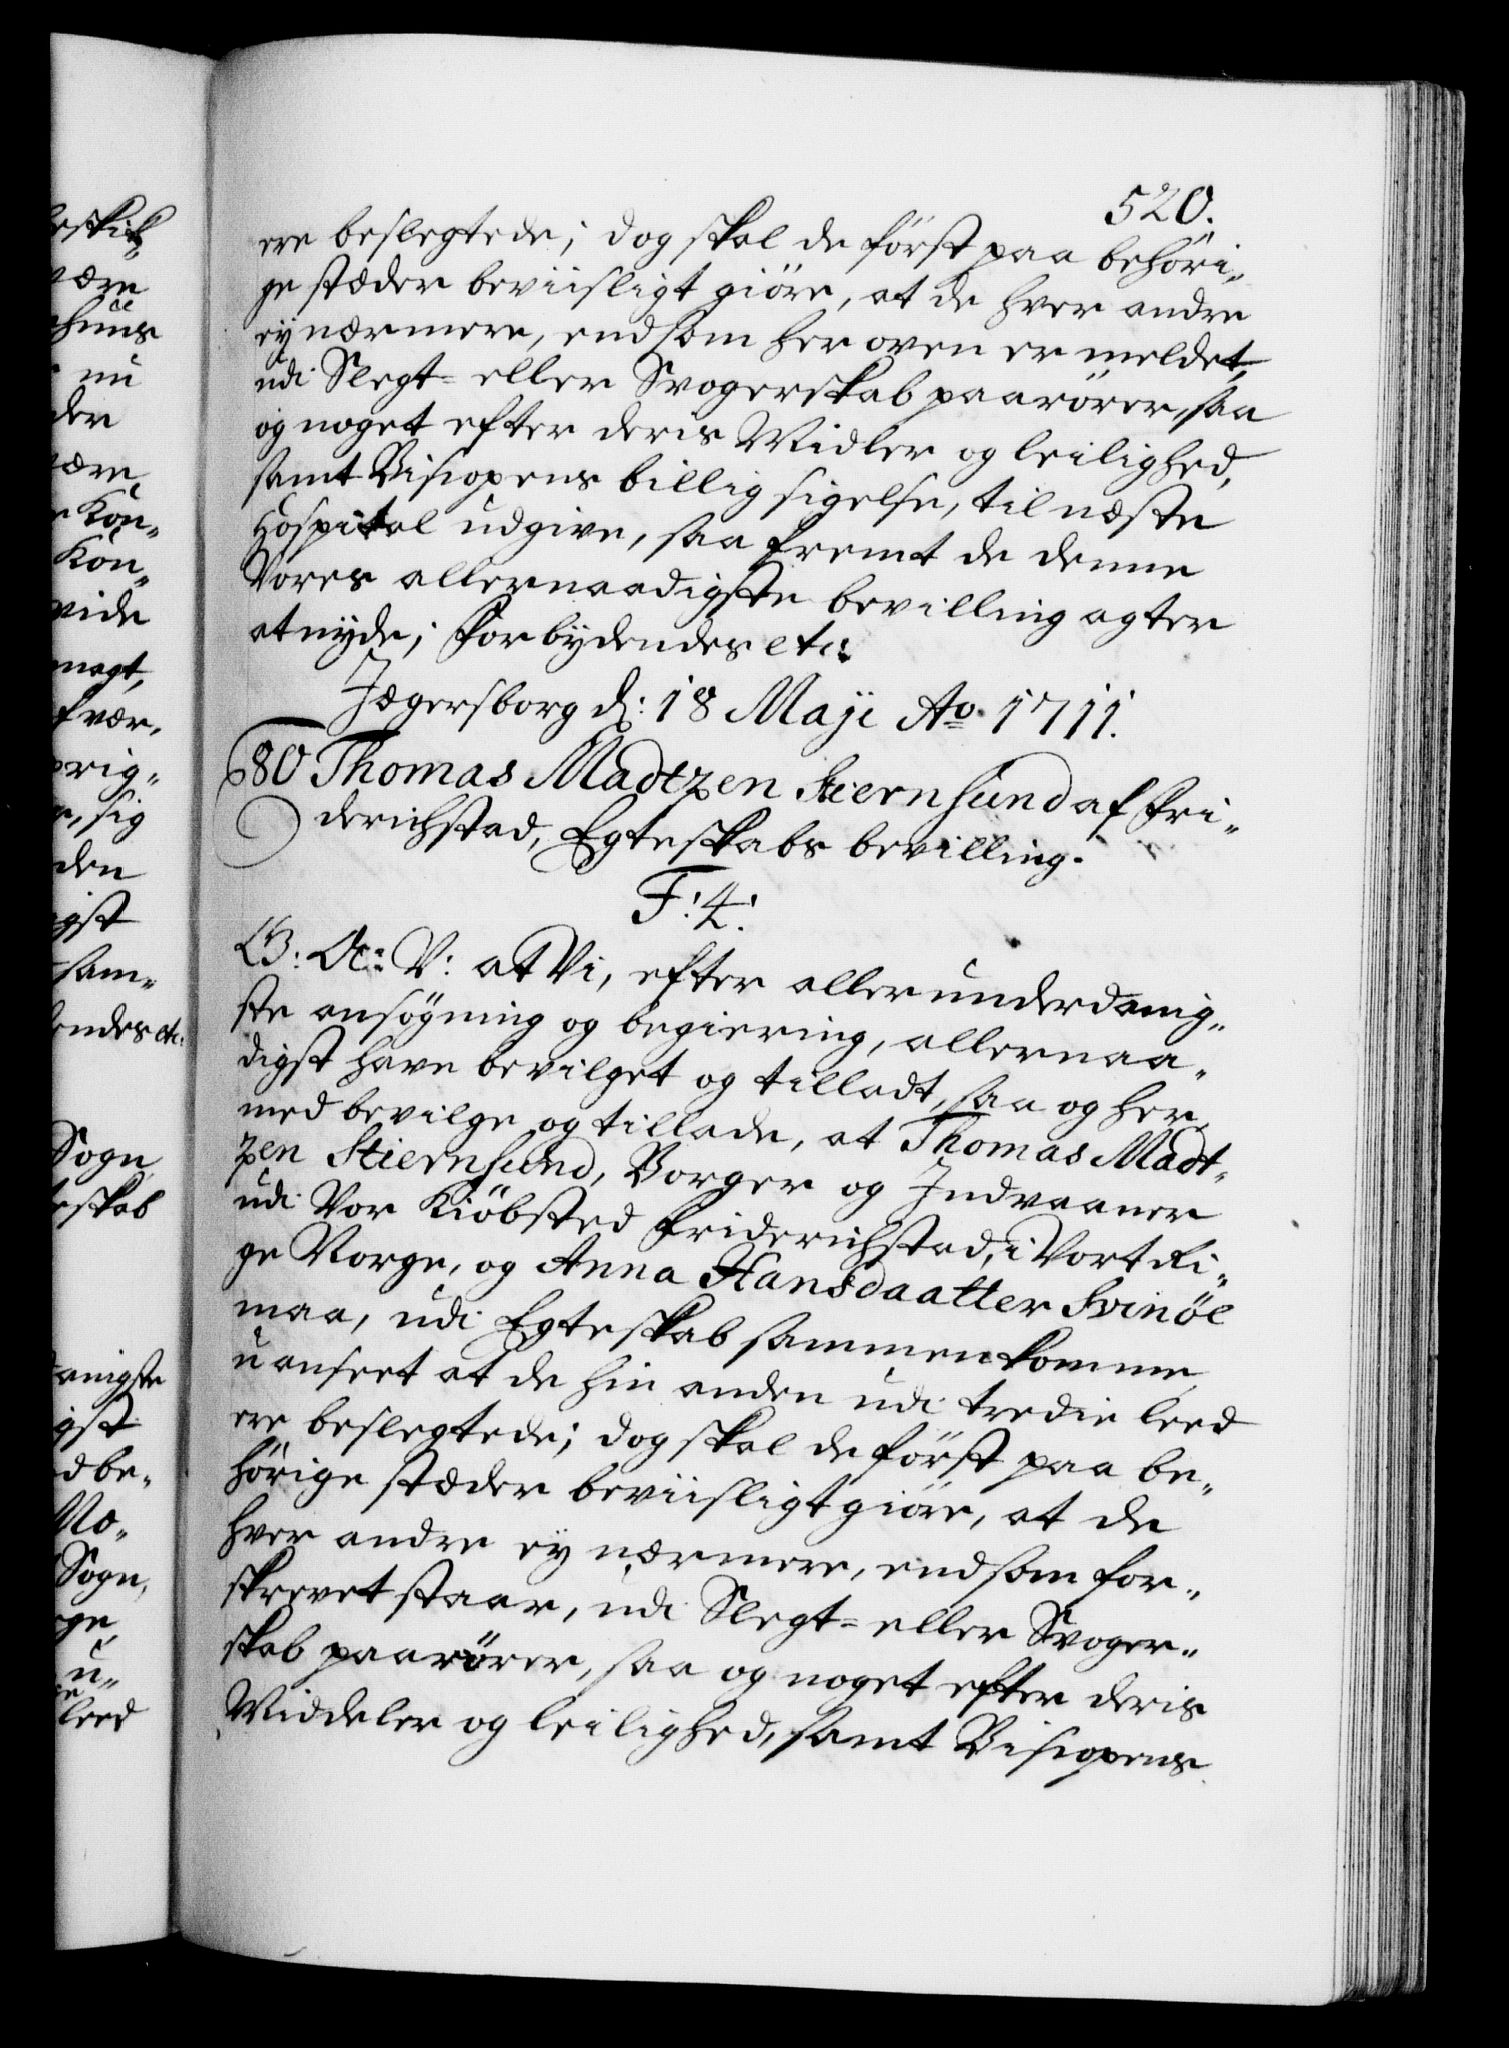 520.
ere beslegtede; dog skal de först paa behöri-
ge stæder beviisligt giöre, at de hver andre
ey nærmere, end som her oven er meldet,
udi Slegt- eller Svogerskab paarörer, saa
og noget efter deris Midler og leilighed,
samt Biscopens billig sigelse, til næste
Hospital udgive, saa fremt de denne
Vores allernaadigste bevilling agter
at nyde; Forbydendes etc:
Jægersborg d: 18 Maji Ao 1711.
80 Thomas Madtzen Stiernsund af Fri-
derichstad, Egteskabs bevilling.
F: 4:
G: A: V: at Vi, efter allerunderdanig-
ste ansögning og begiering, allernaa-
digst have bevilget og tilladt, saa og her
med bevilge og tillade, at Thomas Madt-
zen Stiernsund, Borger og Indvaaner
udi Vor Kiöbsted Friderichstad, i Vort Ri-
ge Norge, og Anna Hansdaatter Svinöe
maa, udi Egteskab sammenkomme,
uanseet at de hin anden udi tredie leed
ere beslegtede; dog skal de först paa be-
hörige stæder beviisligt giöre, at de
hver andre ey nærmere, end som for-
skrevet staar, udi Slegt- eller Svoger-
skab paarörer, saa og noget efter deris
Middeler og leilighed, samt Biscopens